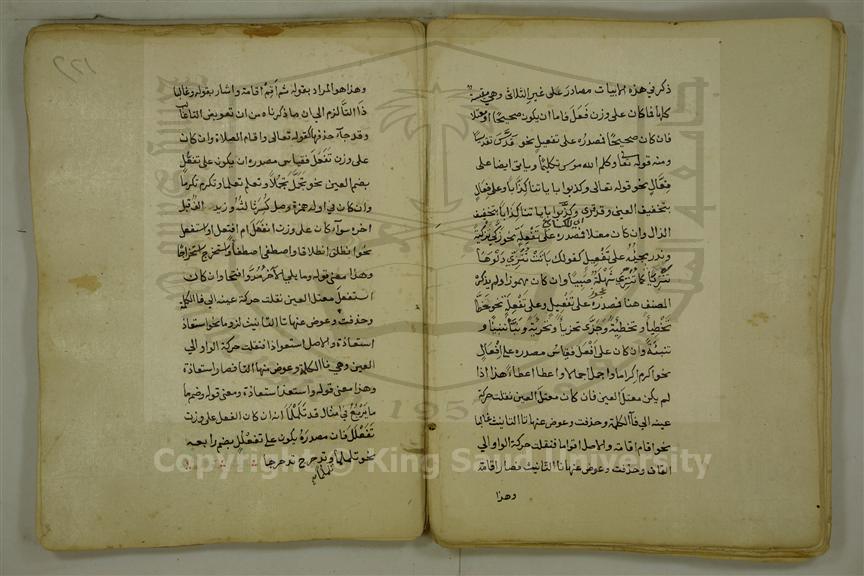 ذكر في هذه الابيات مصادر على غير الثلاثى وهي مقيسة
كلها فما كان على وزن فعل فاما ان يكون صحيحا او معتلا
فان كان صحيحا فمصدره على تفعيل نحو قدس تقديسا
ومنه قوله تعالى وكلم الله موسى تكليما وياتى ايضا على
فعّال نحو قوله تعالى وكذبوا باياتنا كذابا وعلى فعال
بتخفيف العين وقد قرئ وكذبوا باياتنا كذابا بتخفيف
الذال وان كان معتلا فمصدره على تفعلة نحو زكى تزكية
وندر مجيئه على تفعيل كقوله باتت تنزى دلوها
تنزيا كما تنزى شهلة صبيا وان كان مهموزا ولم يذكره
المصنف هنا فمصدره على تفعيل وعلى تفعلة نحو خطأ
تخطيأ وتخطئة وجزأ تجزيأ وتجزئة ونبأ تنبيأ و
تنبئة وان كان على افعل فقياس مصدره على افعال
نحو اكرم اكراما واجمل اجمالا واعطا اعطاء هذا اذا
لم يكن معتل العين فان كان معتل العين نقلت حركة
عينه الى فا الكلمة وحذفت وعوض عنها تا التانيث غالبا
نحو اقام اقامة والاصل اقواما فنقلت حركة الواو الى
القاف وحذفت وعوض عنها تا التانيث فصار اقامة
وهذا
١٢٧
وهذا هو المراد بقوله ثم اقم اقامة واشار بقوله وغالبا
ذا التا لزم الى ان ما ذكرناه من ان تعويض التا غالب
وقد جاء حذفها كقوله تعالى واقام الصلاة وان كان
على وزن تفعل فقياس مصدره ان يكون على تفعل
بضم العين نحو تجمل تجملا وتعلم تعلما وتكرم تكرما
وان كان في اوله همزة وصل كسر ثالثه وزيد الف قبل
اخره سواء كان على وزن انفعل ام افتعل او استفعل
نحو انطلق انطلاقا واصطفى اصطفاء واستخرج استخراجا
وهذا معنى قوله وما يلى الاخر مد وافتحا وان كان
استفعل معتل العين نقلت حركة عينه الى فا الكلمة
وحذفت وعوض عنها تا التانيث لزوما نحو استعاذ
استعاذة والاصل استعواذا فنقلت حركة الواو الى
العين وهي فا الكلمة وعوض منها التا فصار استعاذة
وهذا معنى قوله واستعذ استعاذة ومعنى قوله وضم ما
ما يربع في امثال قد تلملما انه ان كان الفعل على وزن
تفعلل فان مصدره يكون على تفعلل بضم رابعه
نحو تلملم تلملما وتدحرج تدحرجا
Copyright © King Saud University
1957